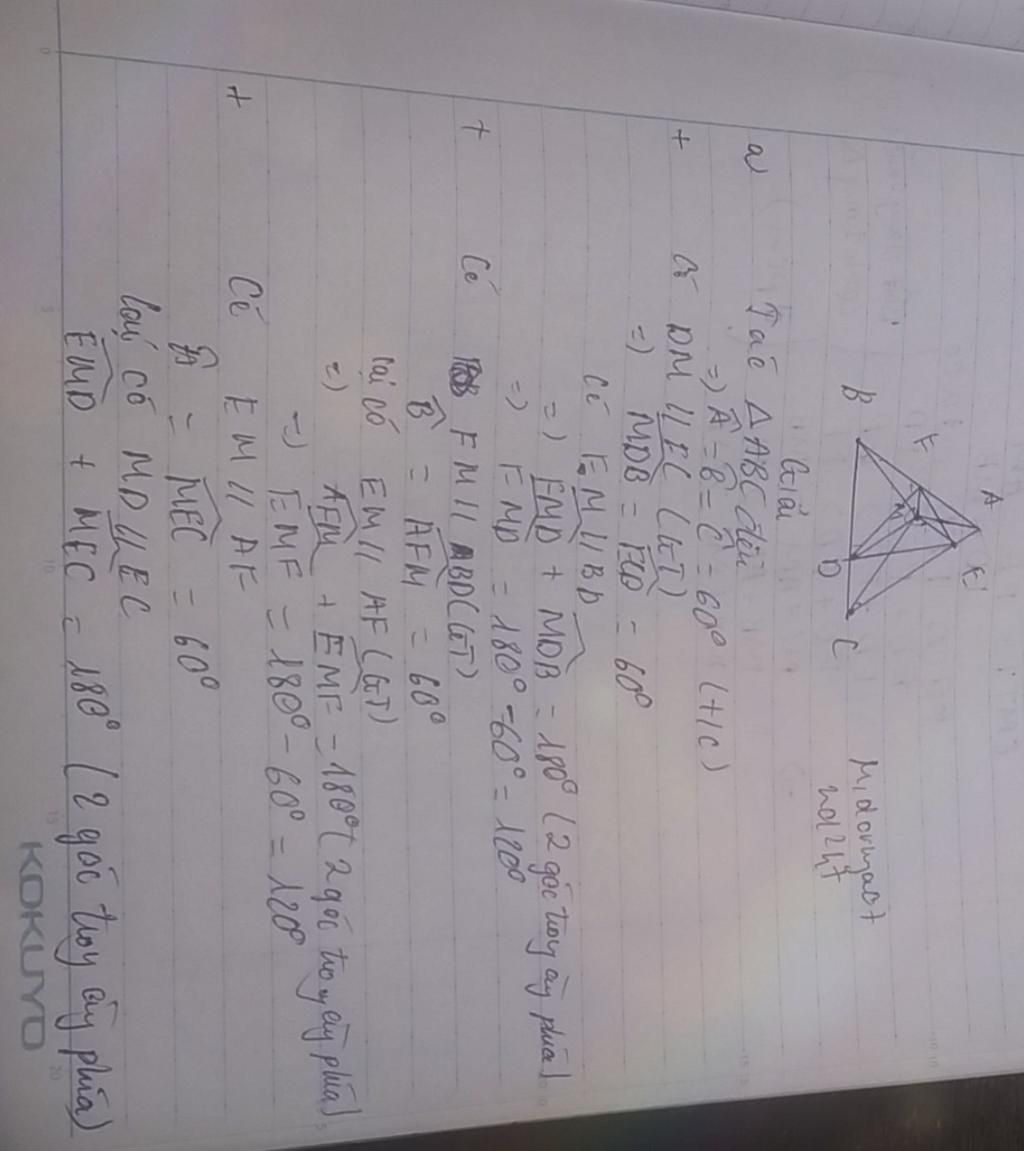 A
F
E
B
D
C
Giải
a) Ta có Δ ABC đều
=> Â = B̂ = Ĉ = 60° (t/c)
+ Có DM // EC (GT)
=> MDB = = 60°
Có FM // BD
=> FMD + MDB = 180° (2 góc trong cùng phía)
=> FMD = 180° - 60° = 120°
+ Có FM // BD (GT)
B̂ = AFM = 60°
lại có EM // AF (GT)
=> AFM + EMF = 180° (2 góc trong cùng phía)
=> EMF = 180° - 60° = 120°
+ Có EM // AF
Â = MEC = 60°
lại có MD // EC
EMD + MEC = 180° (2 góc trong cùng phía)
KOKUYO